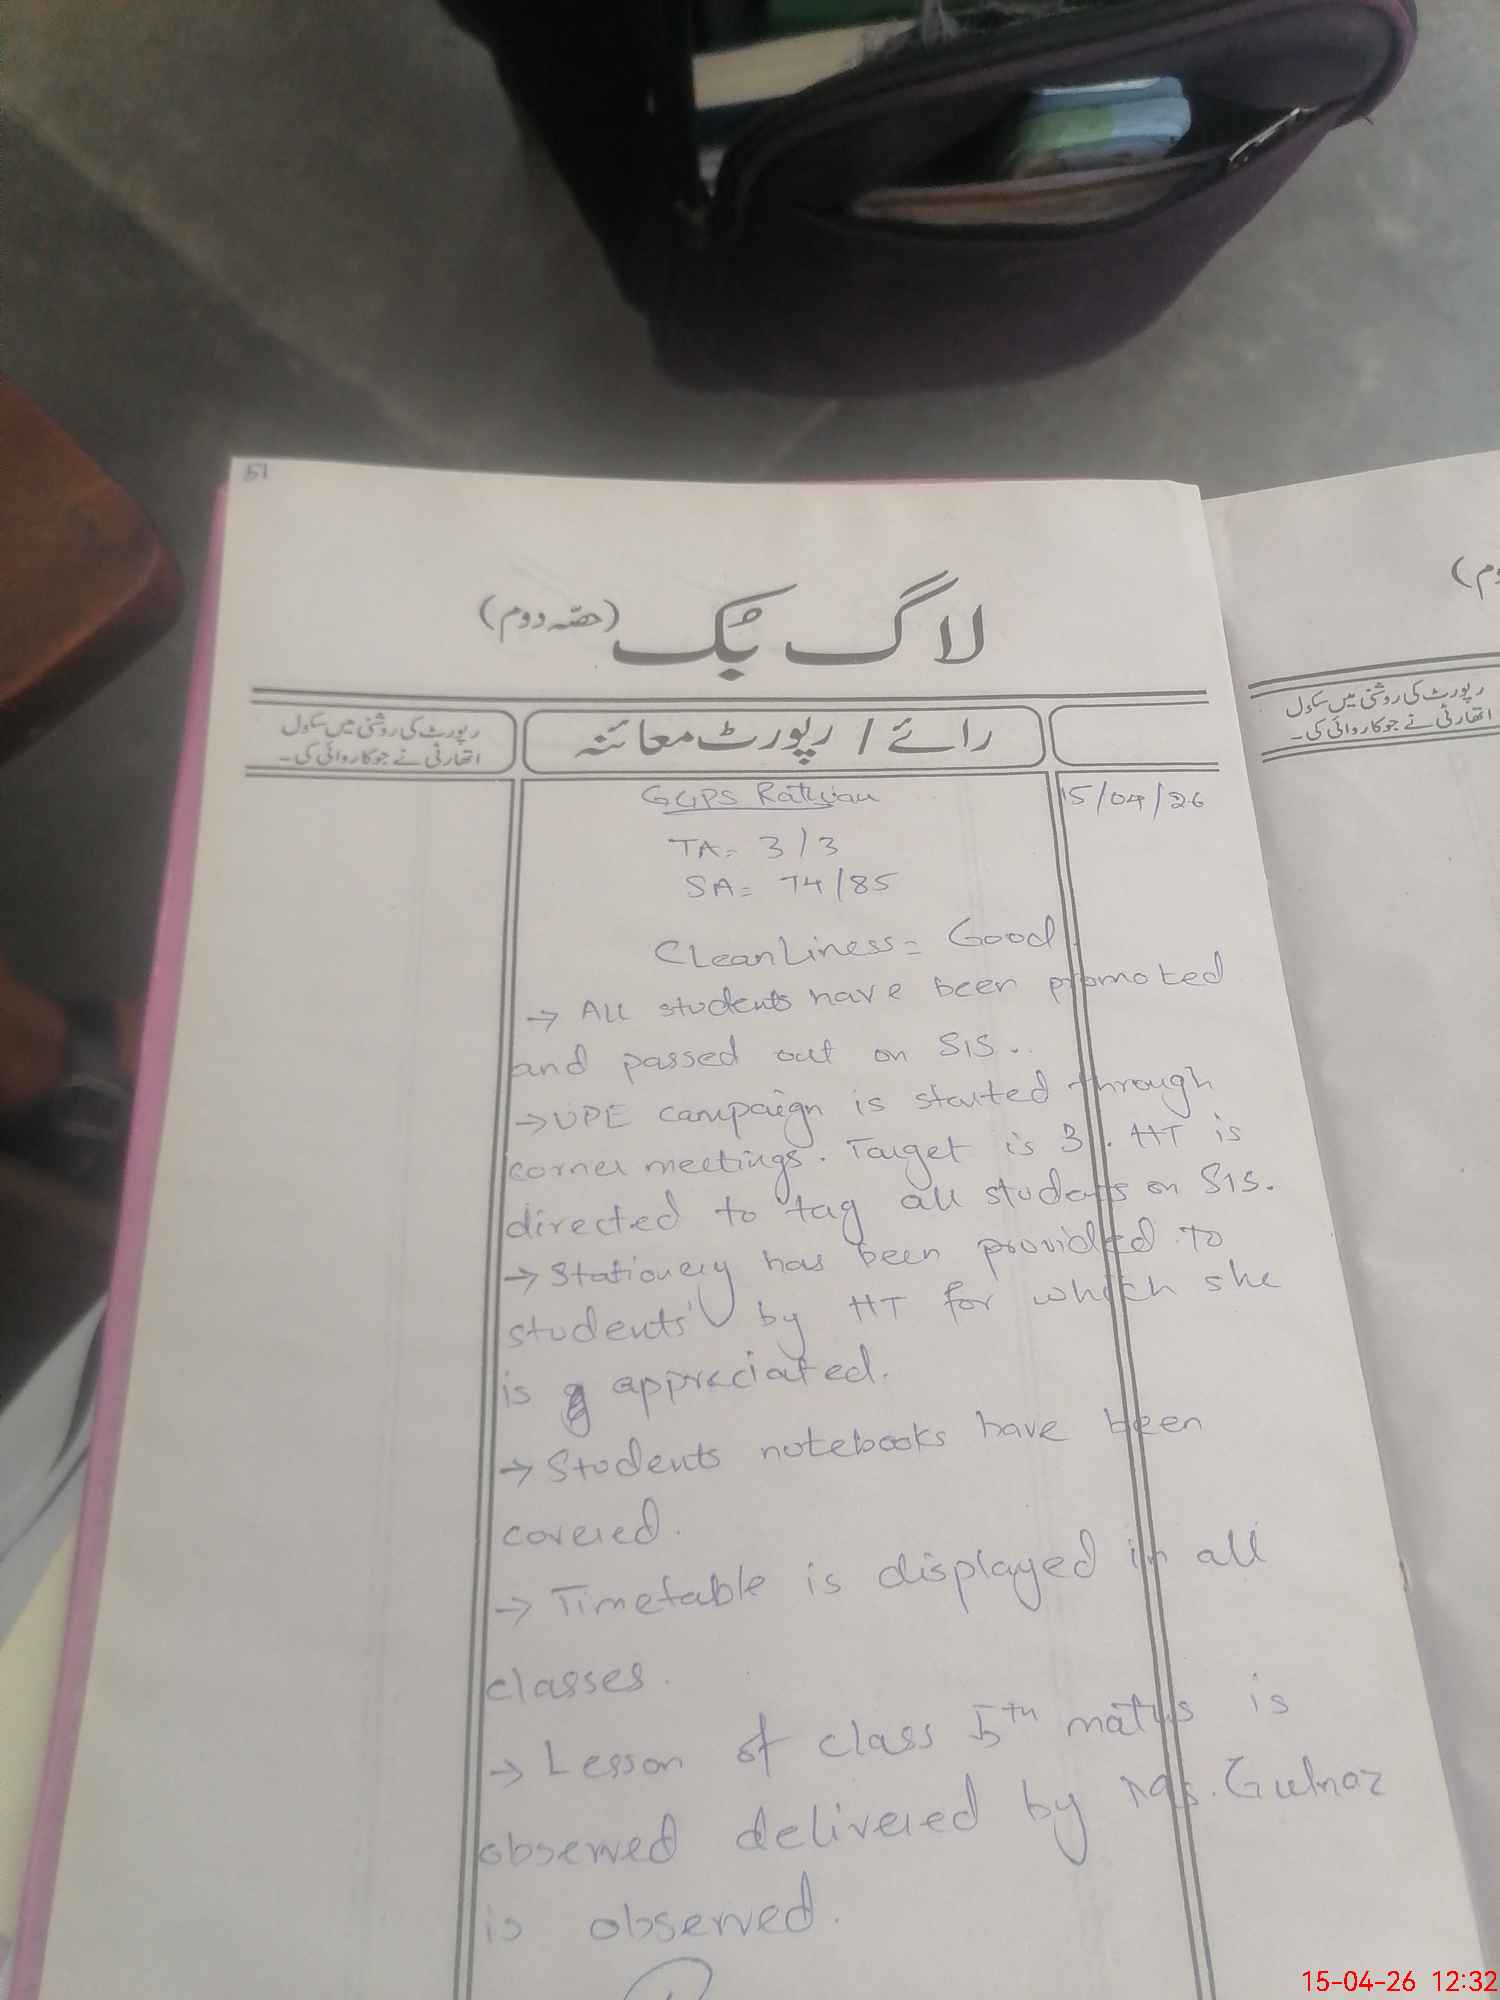 51
لاگ بک (حصّہ دوم)
رپورٹ کی روشنی میں سکول
اتھارٹی نے جو کاروائی کی۔
رائے / رپورٹ معائنہ
GGPS
15/04/26
TA= 3/3
SA= 74/85
Cleanliness= Good.
→ All students have been promoted
and passed out on SIS.
→ UPE campaign is started through
corner meetings. Target is 31. HT is
directed to tag all students on SIS.
→ Stationery has been provided to
students by HT for which she
is appreciated.
→ Students notebooks have been
covered.
→ Timetable is displayed in all
classes.
→ Lesson of class 5th maths is
observed delivered by Ms. Gulnaz
is observed.
دوم)
رپورٹ کی روشنی میں سکول
اتھارٹی نے جو کاروائی کی۔
15-04-26 12:32